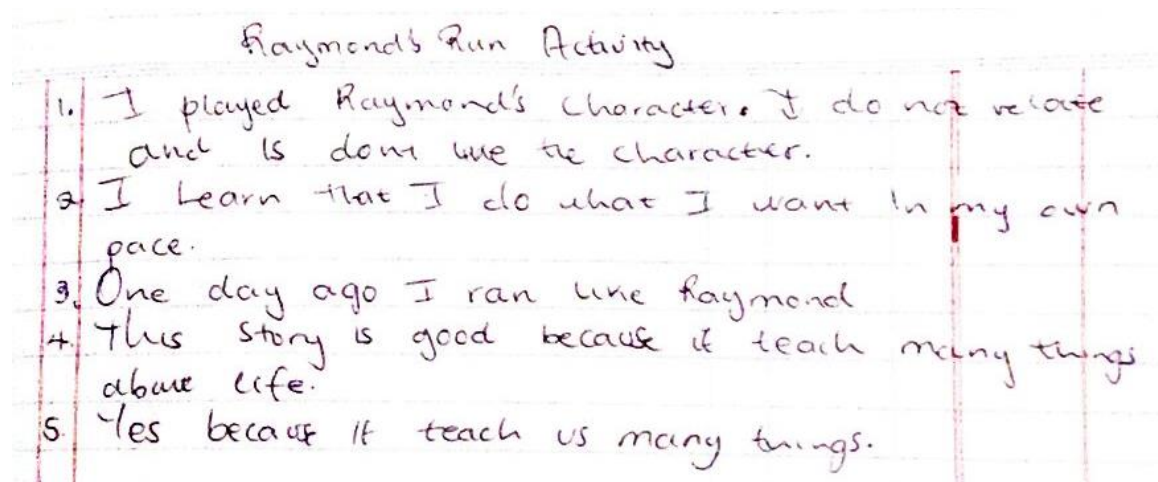 Raymond's Run Activity
1. I played Raymond's Character. I do not relate
and is dont like the character.
2. I Learn that I do what I want in my own
pace.
3. One day ago I ran like Raymond
4. This Story is good because it teach many things
about life.
5. Yes because it teach us many things.